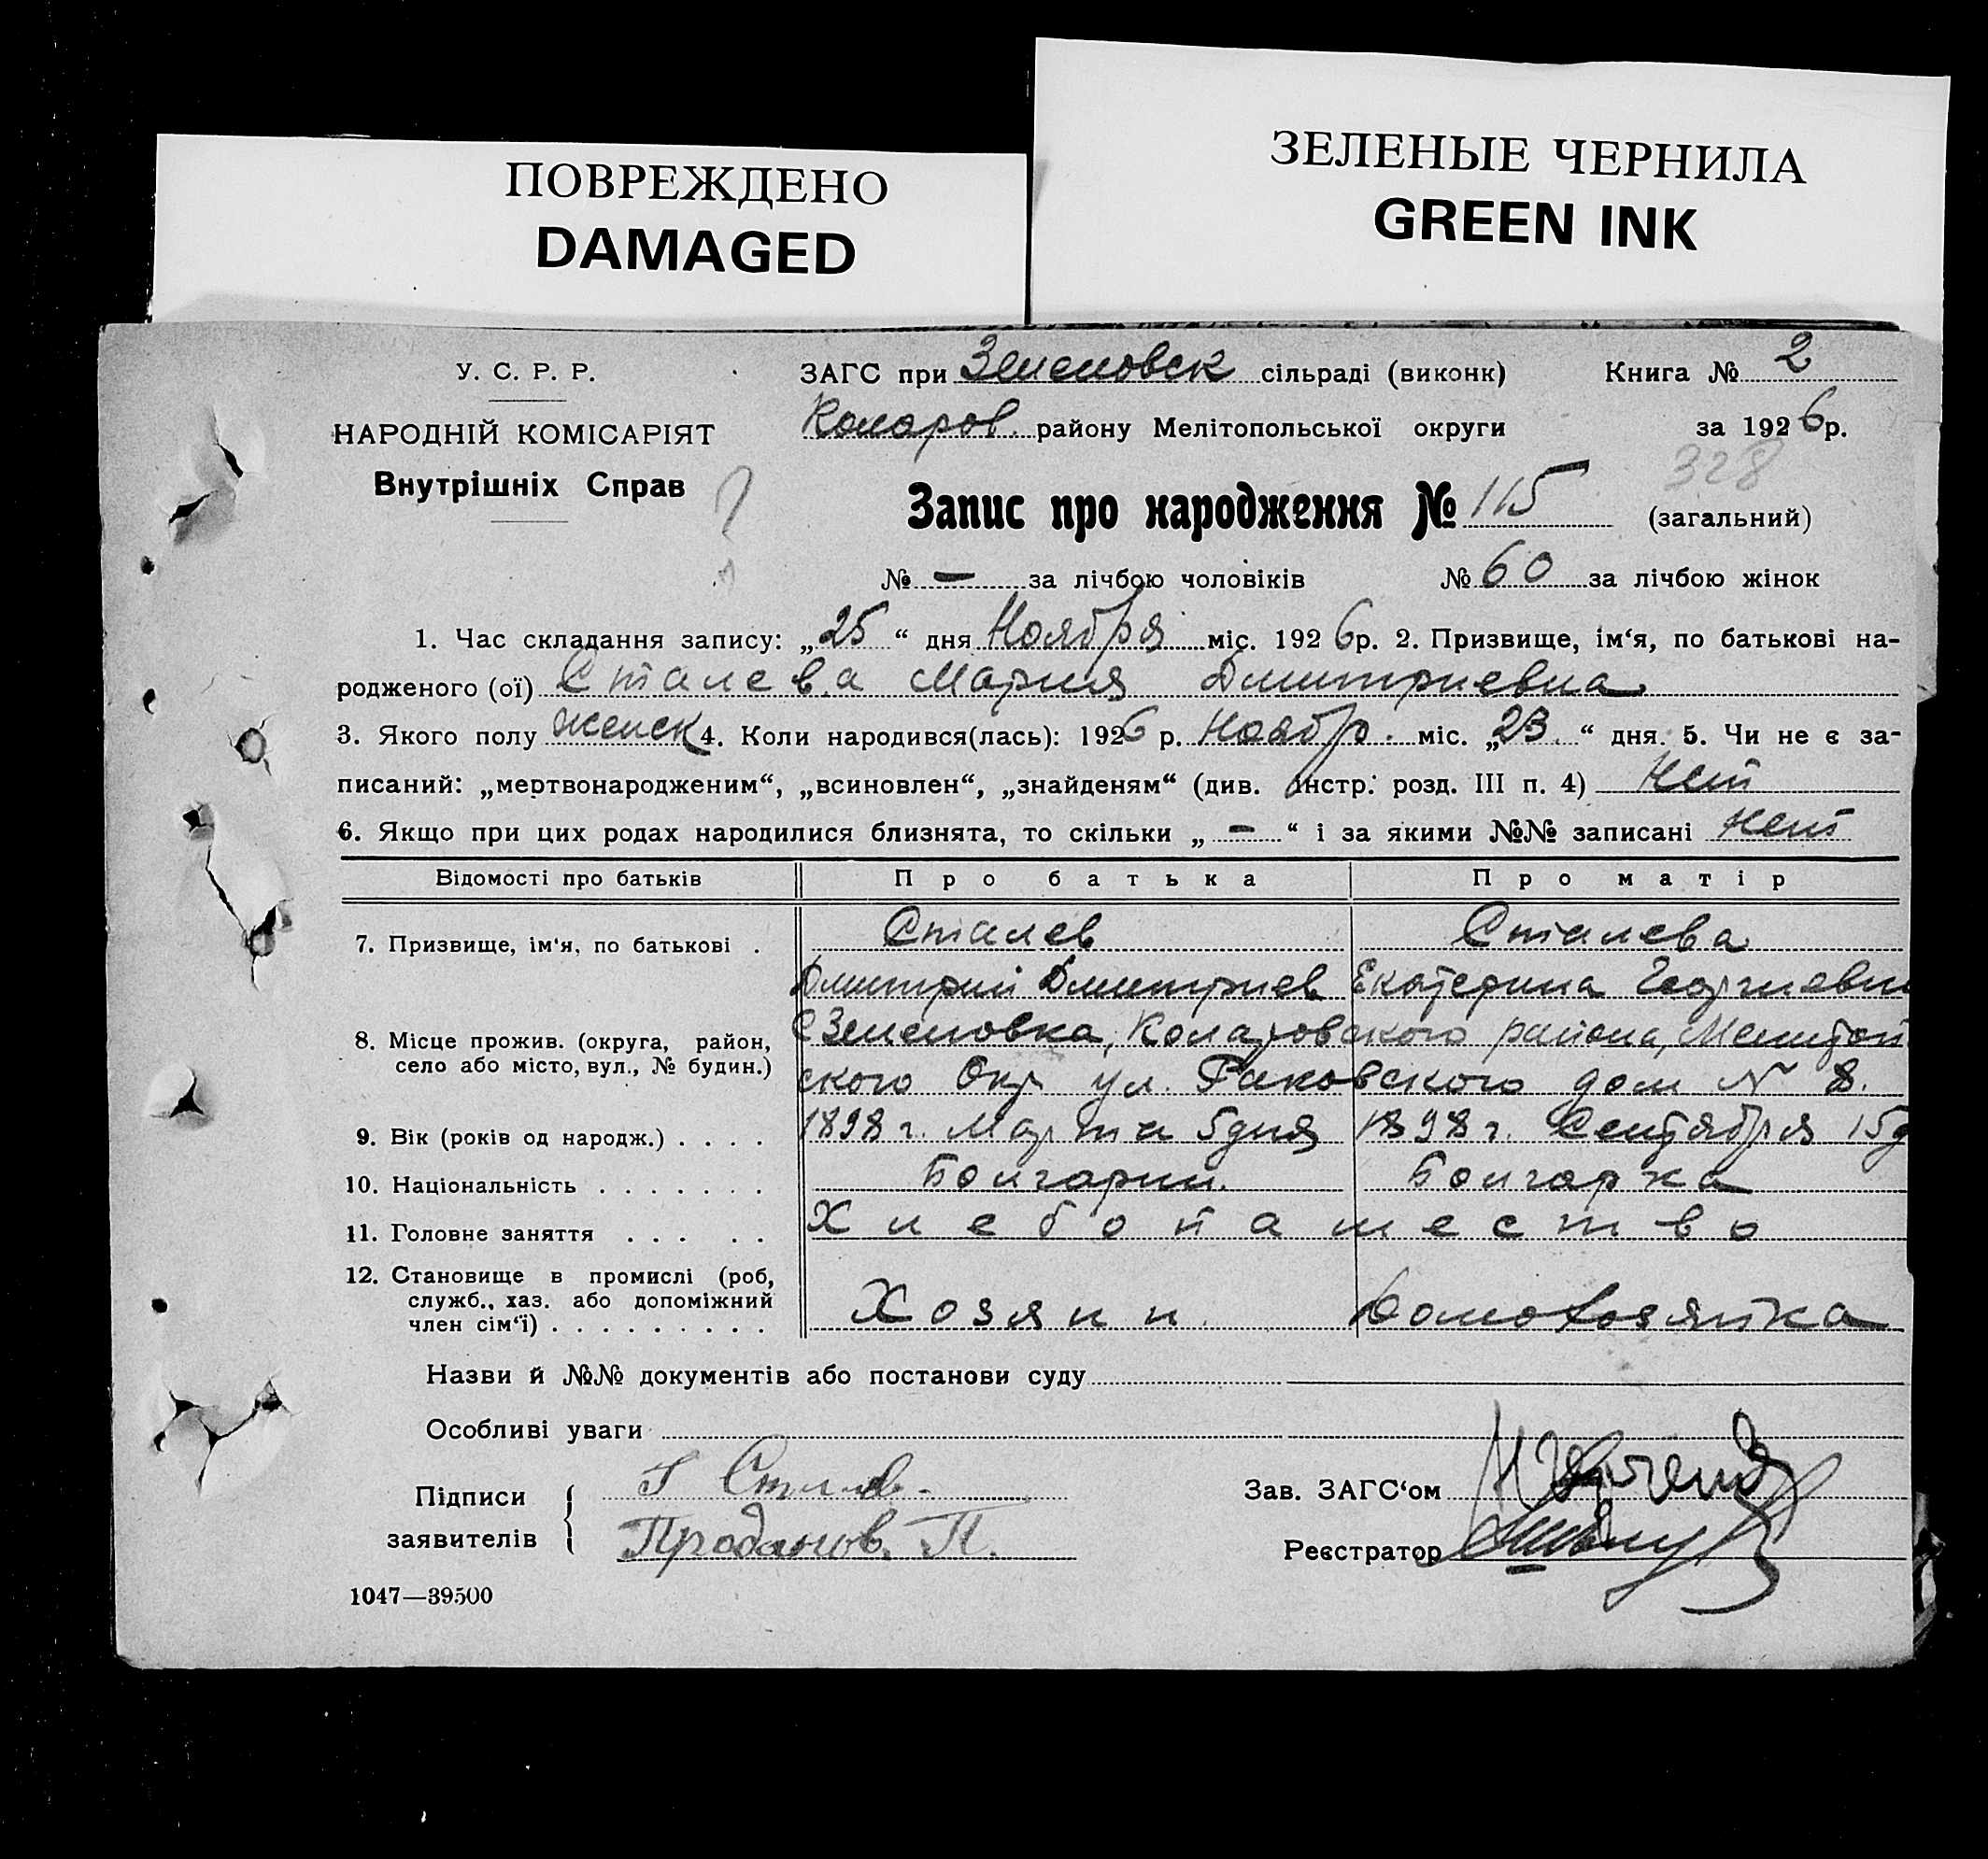 ПОВРЕЖДЕНО
DAMAGED
ЗЕЛЕНЫЕ ЧЕРНИЛА
GREEN INK
У. С. Р. Р.
НАРОДНІЙ КОМІСАРІЯТ
Внутрішніх Справ
ЗАГС при Зеленовск сільраді (виконк) Книга № 2
Коларов. району Мелітопольської округи за 1926 р.
328
Запис про народження № 115 (загальний)
№ — за лічбою чоловіків № 60 за лічбою жінок
1. Час складання запису: „25“ дня Ноября міс. 1926 р. 2. Призвище, ім‘я, по батькові на-
родженого (ої) Сталева Мария Дмитриевна
3. Якого полу женск 4. Коли народився(лась): 1926 р. Ноябр. міс. „23“ дня. 5. Чи не є за-
писаний: „мертвонародженим“, „всиновлен“, „знайденям“ (див. інстр. розд. III п. 4) Нет
6. Якщо при цих родах народилися близнята, то скільки „ — “ і за якими №№ записані Нет
Відомості про батьків Про батька Про матір
7. Призвище, ім‘я, по батькові . Сталев Сталева
Дмитрий Дмитриев Екатерина Георгиевн
8. Місце прожив. (округа, район, село або місто, вул., № будин.) С Зеленовка, Коларовского района, Мелитоп
ского Окр. ул. Раковского дом № 8.
9. Вік (років од народж.) . . . . 1898 г. Марта 5 дня 1898 г. Сентября 15 д
10. Національність . . . . . . . Болгарин. Болгарка
11. Головне заняття . . . . . Хлебопашество
12. Становище в промислі (роб, служб., хаз. або допоміжний член сім‘ї) . . . . . . . . . Хозяин Домохозяйка
Назви й №№ документів або постанови суду
Особливі уваги
Підписи
заявителів
Проданов. П.
Зав. ЗАГС‘ом
Реєстратор
1047—39500